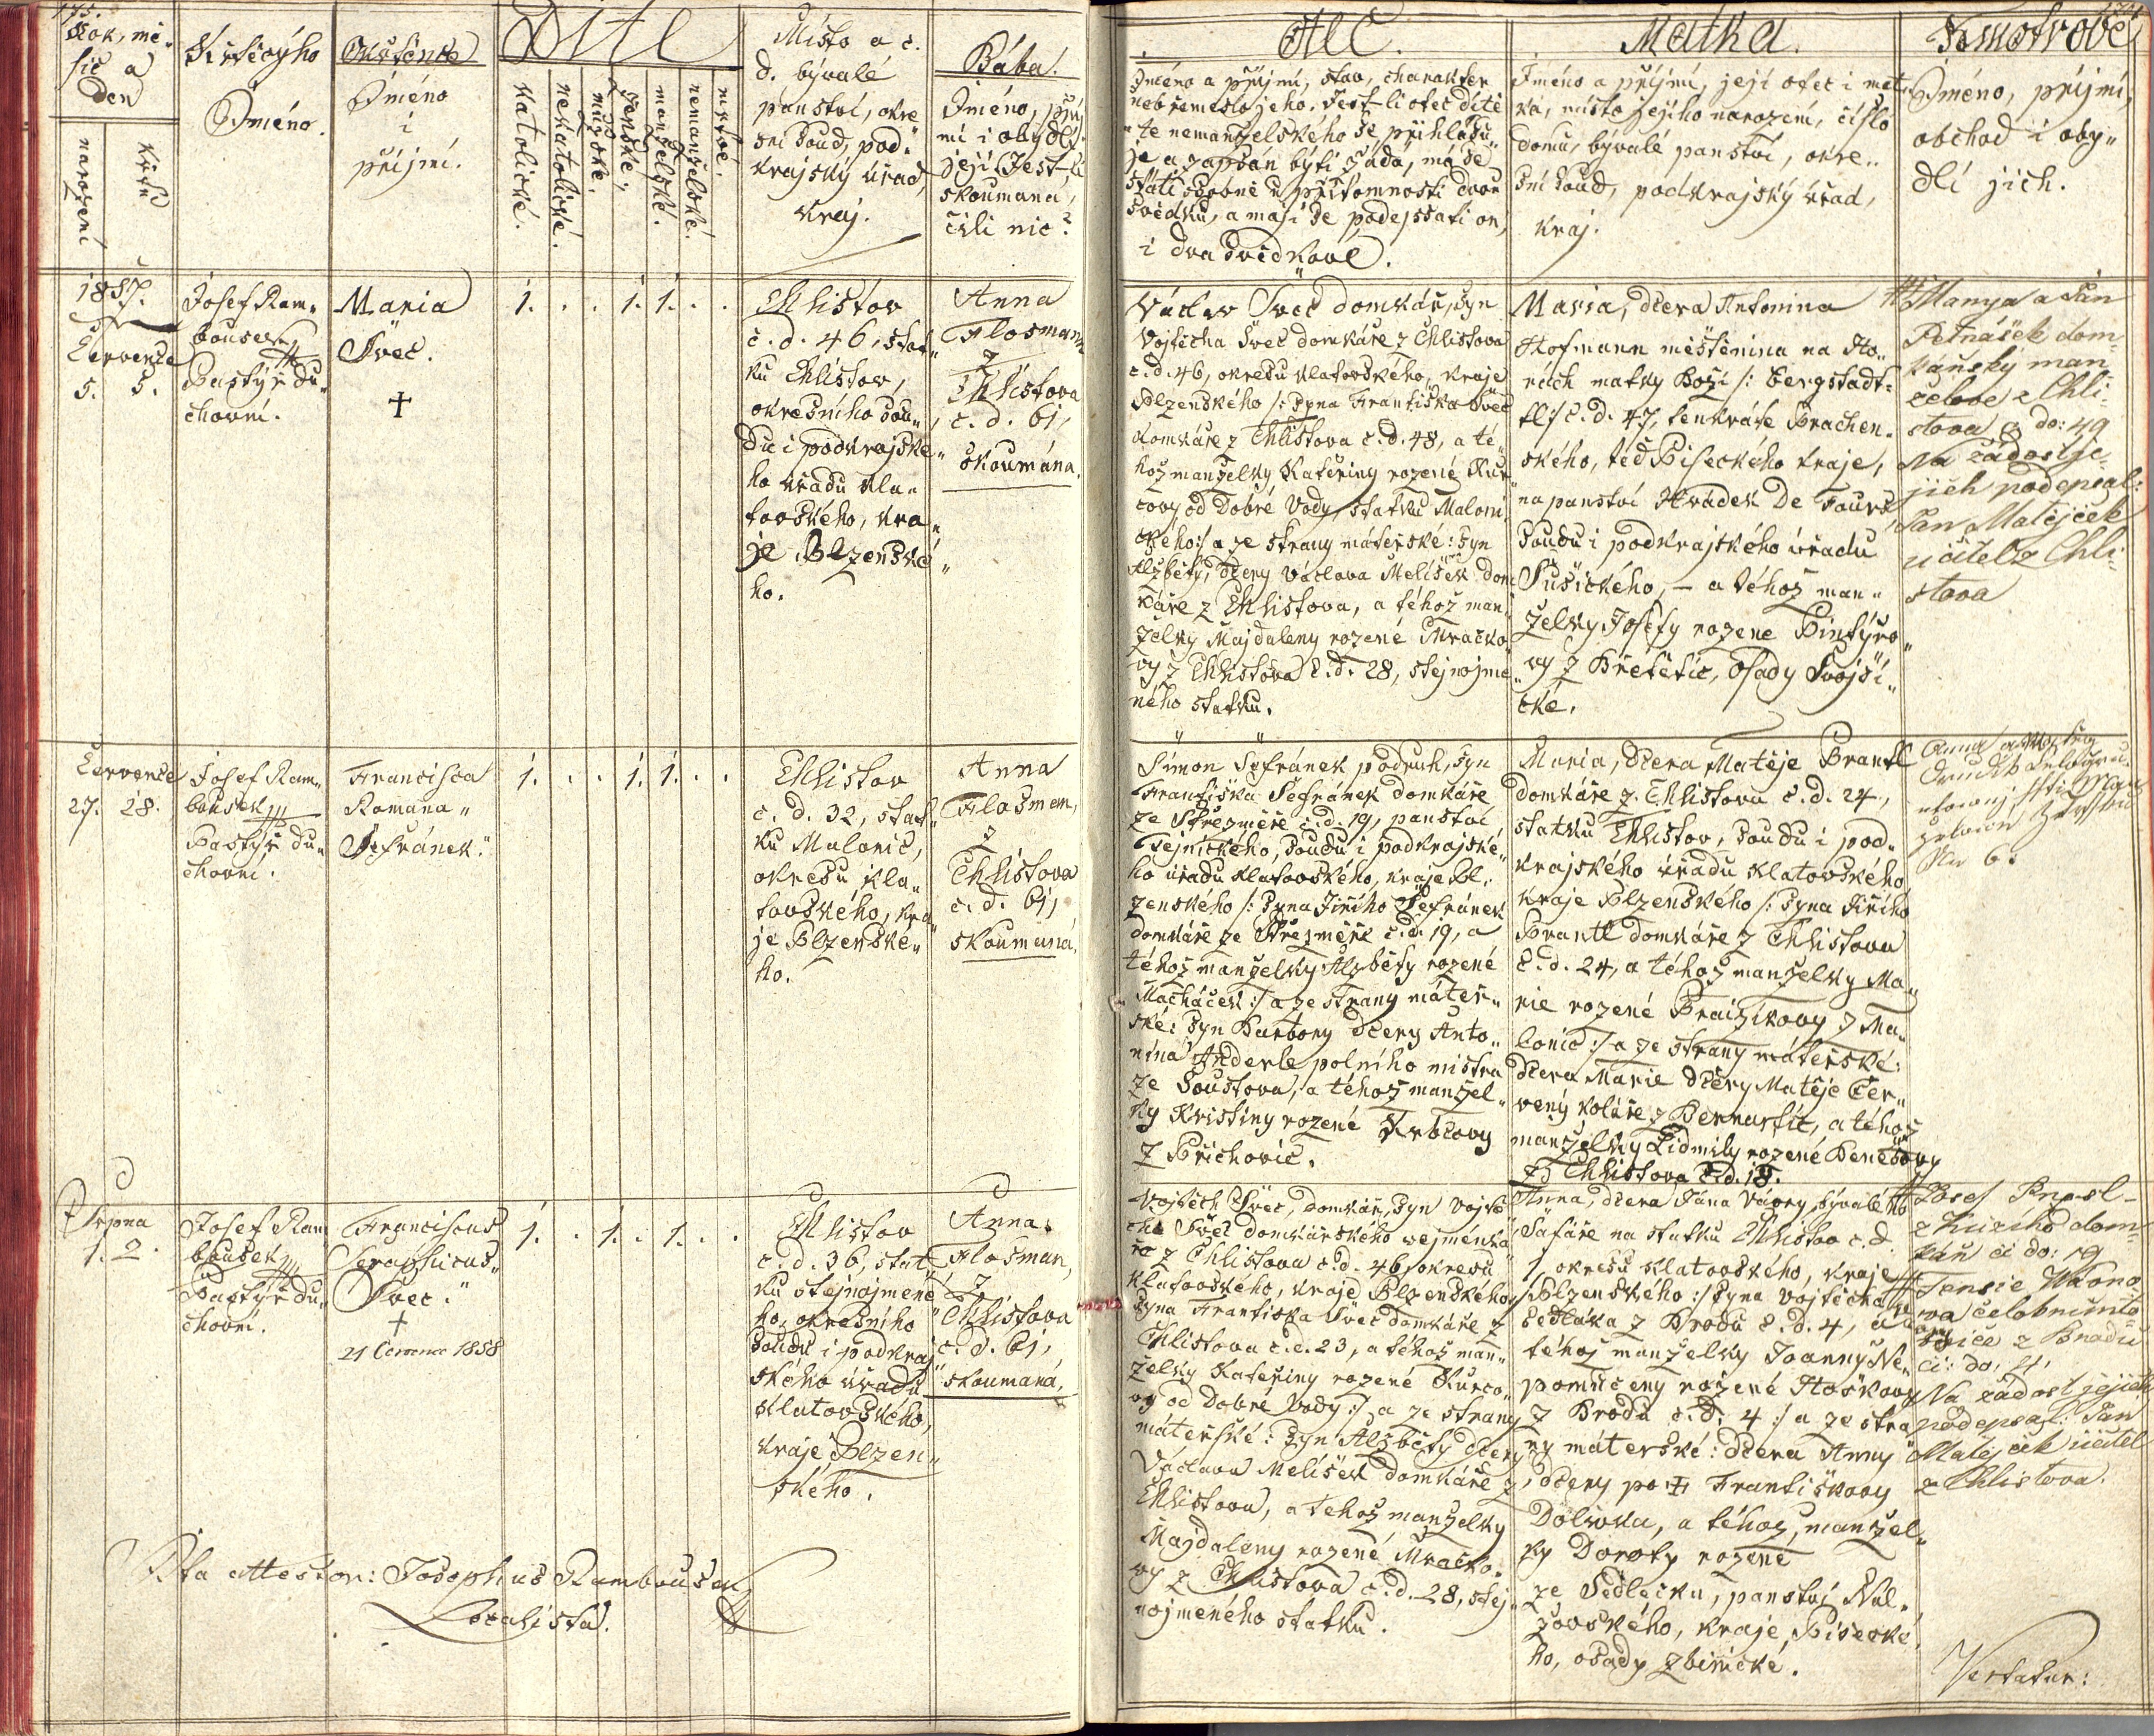 175.
Rok, mě-
síc a
den
narození
křtu
Křtícýho
Jméno.
Okřtěnce
Jméno
i
příjmí.
Dítě
katolické.
nekatolické.
mužské.
ženské.
manželské.
nemanželské.
mrtvé.
Místo a č.
d. bývalé
panství, okre
sní soud, pod-
krajský úřad,
kraj.
Bába.
Jméno, příj
mí i obydlí
její. Jest-li
skoumaná,
čili nic?
Otec.
Jméno a příjmí, stav, charakter
neb řemeslo jeho. Jest-li otec dítě
te nemanželského se přihlašu-
je a zapsán býti žádá, má se
státi osobně u přítomnosti dvou
svědků, a mají se podepsati on,
i dva svědkové.
Matka.
Jméno a příjmí, její otec i mat
ka, místo jejího narození, číslo
domu, bývalé panství, okre-
sní soud, podkrajský úřad,
kraj.
Kmotrové
Jméno, příjmí,
obchod i oby-
dlí jich.
1857.
Července
5. 5.
Josef Ram-
bousek
Pastýř du-
chovní.
Maria
Švec.
†
1. . . 1. 1. . .
Chlistov
č. d. 46, stat-
ku Chlistov,
okresního sou-
du i podkrajské-
ho úřadu Kla-
tovského, kra-
je Plzenské-
ho.
Anna
Flosman
z
Chlistova
č. d. 61,
skoumána.
Václav Švec domkář, syn
Vojtěcha Švec domkáře z Chlistova
č. d. 46, okresu Klatovského, kraje
Plzenského /: syna Františka Švec
domkáře z Chlistova č. d. 48, a té-
hož manželky Kateřiny rozené Kur-
covy od Dobré Vody, statku Maloni
ckého :/ a ze strany máteřské: syn
Alžběty, dcery Václava Melíšek dom
káře z Chlistova, a téhož man-
želky Majdaleny rozené Mračko-
vy z Chlistova č. d. 28, stejnojme-
ného statku.
Maria, dcera Antonína
Hofmann měštěnína na Ho-
rách matky Boží /: Bergstadt-
tl :/ č. d. 47, tenkráte Prachen-
ského, teď Píseckého kraje,
na panství Hrádek De Fours
soudu i podkrajského úřadu
Sušického, – a téhož man-
želky Josefy rozené Pintýro-
vy z Břetětic, osady Svojši-
cké.
Manya a Jan
Petrášek dom-
kářský man-
želove z Chli-
stova č do: 49
Na žádost je-
jich podepsal:
Jan Matějček
učitel z Chli-
stova
Července
27. 28.
Josef Ram-
bousek
Pastýř du-
chovní.
Francisca
Romana
Šefránek.
1. . . 1. 1. . .
Chlistov
č. d. 32, stat-
ku Malonic,
okresu Kla-
tovského, kra
je Plzenské-
ho.
Anna
Flosman,
z
Chlistova
č. d. 61,
skoumaná.
Šimon Šefránek podruh, syn
Františka Šefránek domkáře
ze Střezměře č. d. 19, panství
Tejnického, soudu i podkrajské-
ho úřadu Klatovského, kraje Pl-
zenského /: syna Jiřího Šefránek
domkáře ze Střezměře č. d. 19, a
téhož manželky Alžběty rozené
Macháček :/ a ze strany máteř-
ské: syn Barbory dcery Anto-
nína Anderle polního mistra
ze Soustova, a téhož manžel-
ky Kristiny rozené Krbcovy
z Přichovic.
Maria, dcera Matěje Brantl
domkáře z Chlistova č. d. 24,
statku Chlistov, soudu i pod-
krajského úřadu Klatovského
kraje Plzenského /: syna Jiřího
Brantl domkáře z Chlistova
č. d. 24, a téhož manželky Ma-
rie rozené Braizikovy z Ma-
lonic :/ a ze strany máteřské:
dcera Marie dcery Matěje Čer-
vený koláře z Bernartic, a téhož
manželky Lidmily rozené Benešovy
z Chlistova č. d. 18.
Srpna
1. 2.
Josef Ram
bousek
Pastýř du-
chovní.
Franciscus
Seraphicus
Švec.
†
21 Července 1858
1. . 1. . 1. . .
Chlistov
č. d. 36, stat-
ku stejnojmené-
ho, okresního
soudu i podkraj
ského úřadu
Klatovského,
kraje Plzen-
ského.
Anna
Flosman,
z
Chlistova
č. d. 61,
skoumaná.
Vojtěch Švec, domkář, syn Vojtě
cha Švec domkářského vejměnká
ře z Chlistova č. d. 46, okresu
Klatovského, kraje Plzenského
syna Františka Švec domkáře z
Chlistova č. d. 23, a téhož man-
želky Kateřiny rozené Kurco-
vy od Dobré Vody :/ a ze strany
máteřské: syn Alžběty dcery
Václava Melíšek domkáře z
Chlistova, a téhož manželky
Majdaleny rozené Mračko-
vy z Chlistova č. d. 28, stej-
nojmeného statku.
Anna, dcera Jana Vávry, bývalého
šafáře na statku Chlistov č. d.
1, okresu Klatovského, kraje
Plzenského :/ syna Vojtěcha
sedláka z Brodu č. d. 4, a
téhož manželky Joanny Ne-
pomuceny rozené Hoškovy
z Brodu č. d. 4 :/ a ze stra
ny máteřské: dcera Anny
dcery po † Františkovy
Dolivka, a téhož manžel-
ky Doroty rozené
ze Sedlečka, panství Nal-
žovského, kraje Písecké-
ho, osady Zbinické.
Josef
dom-
kář č do: 19
z Brodu
č: do. 4,
Na žádost jejich
podepsal: Jan
Matějček učitel
z Chlistova.
Ita attestor: Josephus Rambousek,
Localista.
Vertatur: